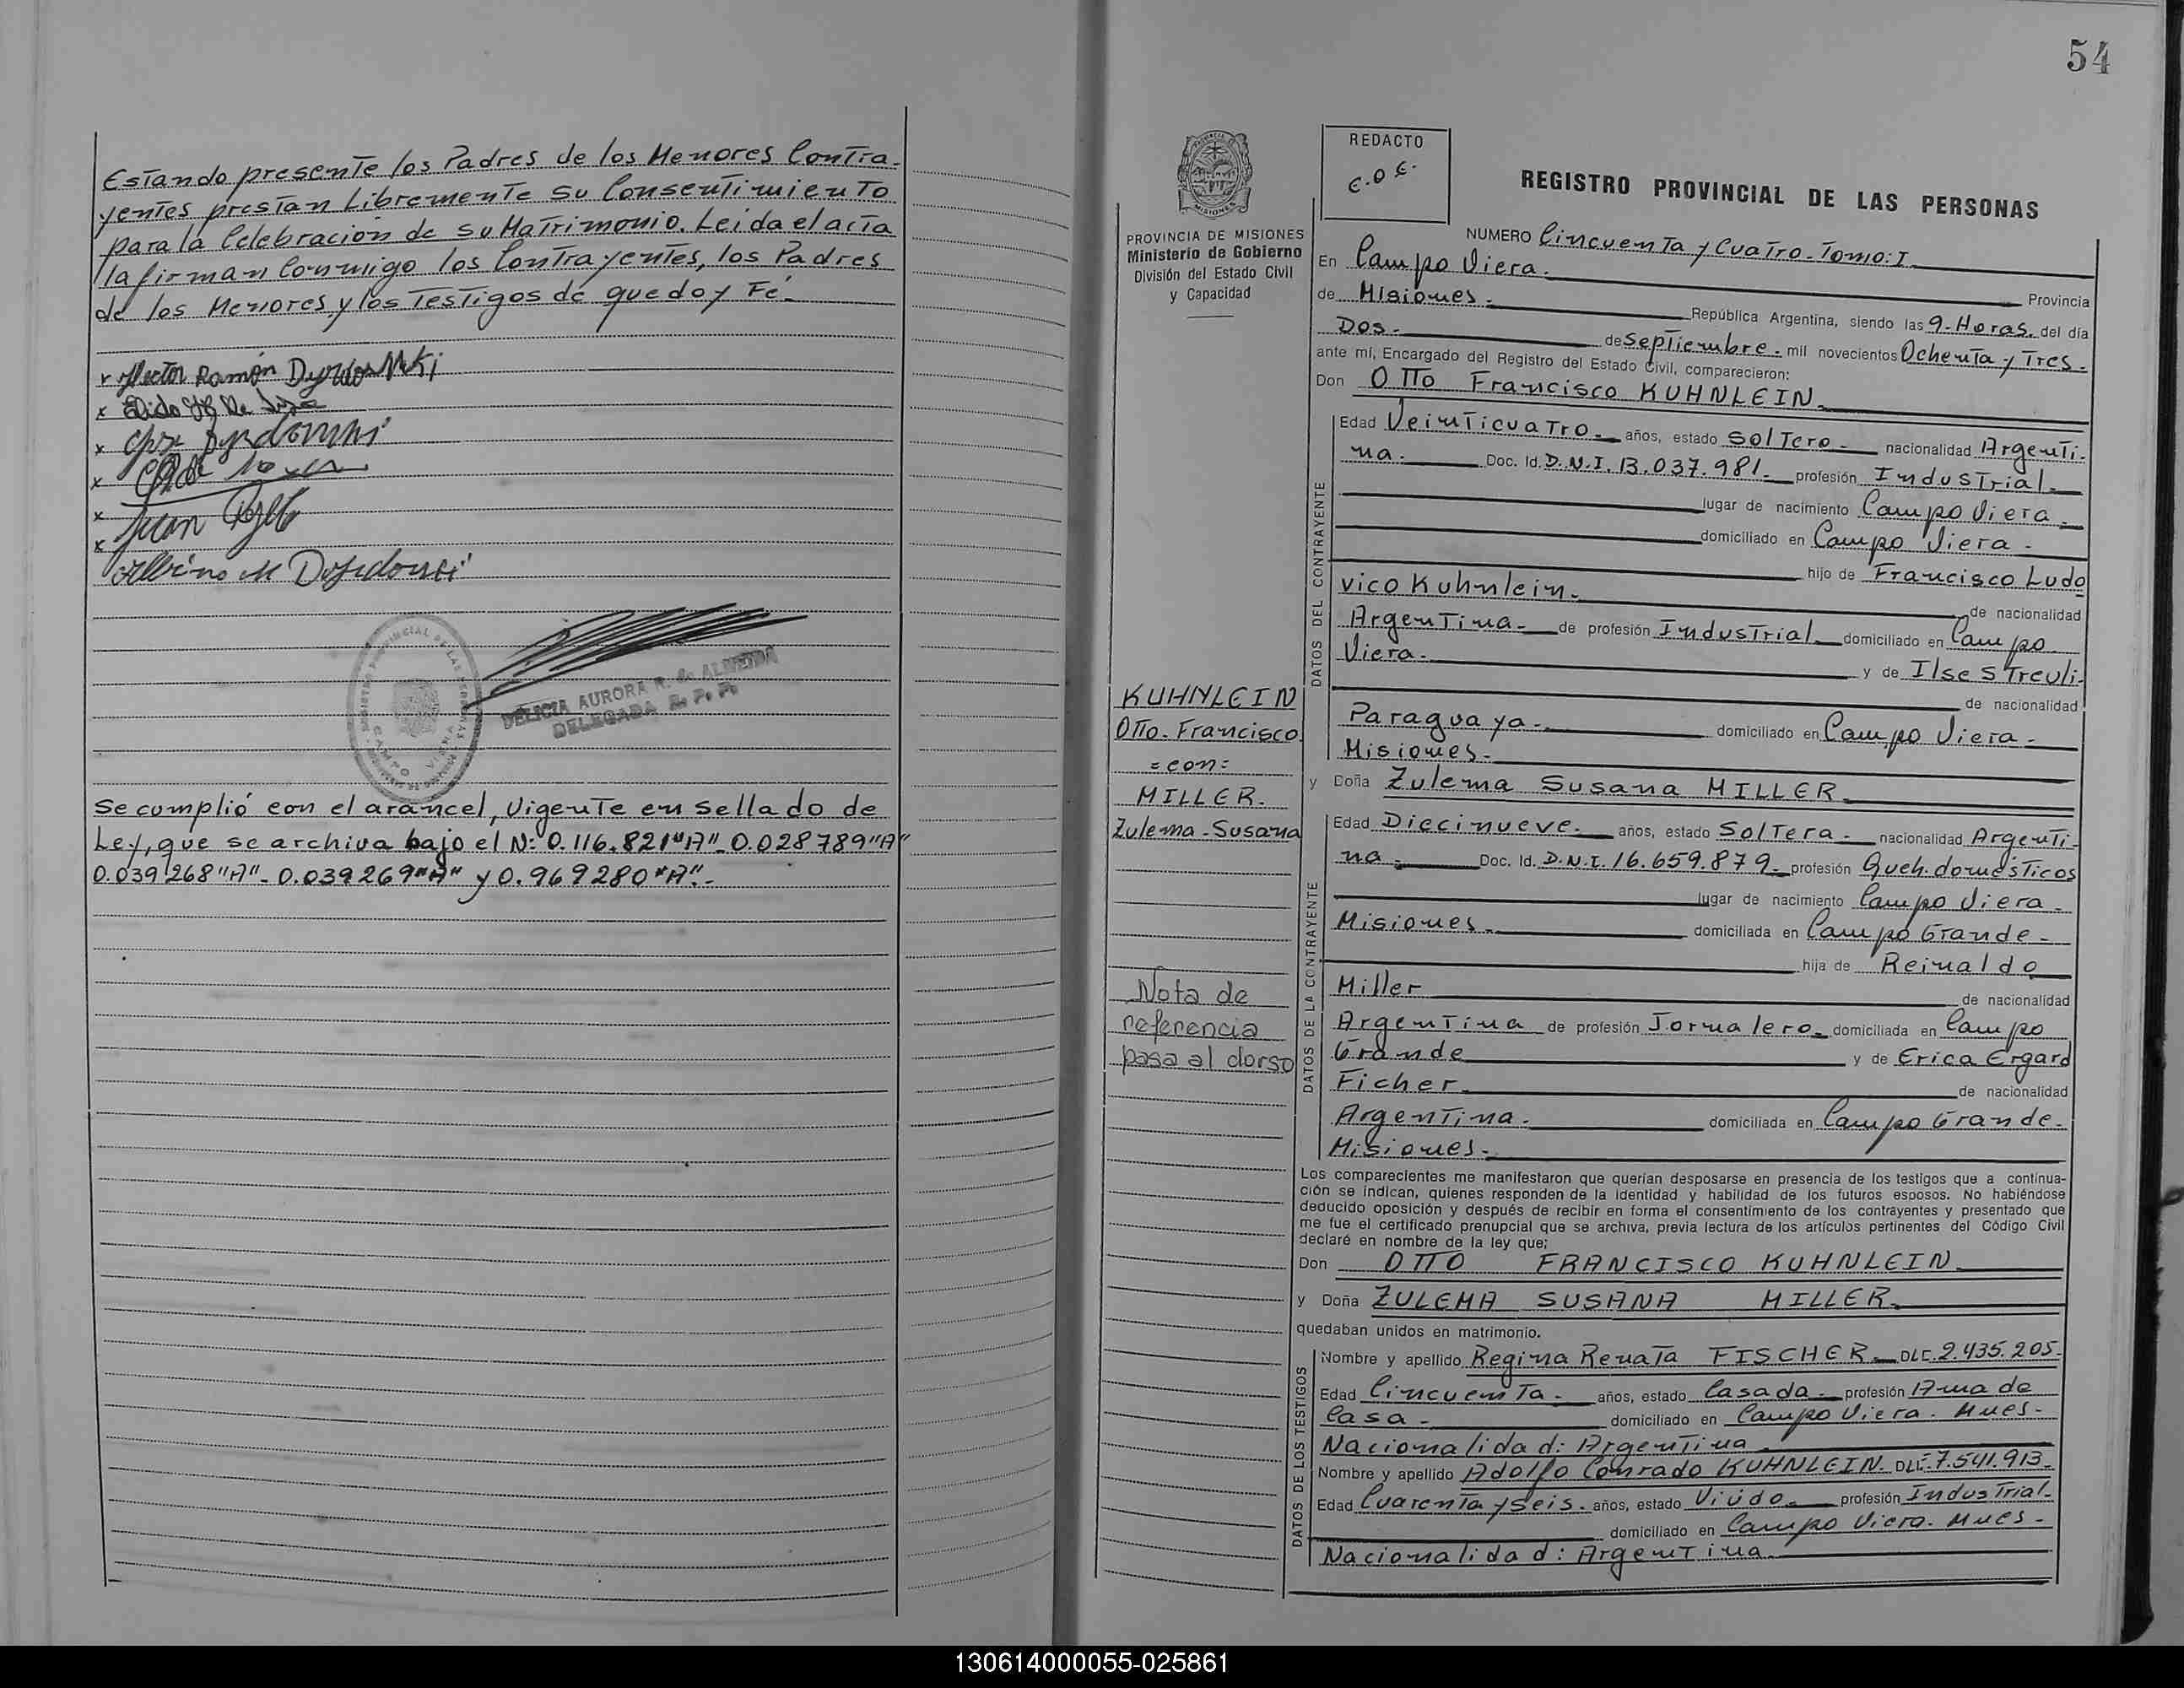 Estando presente los Padres de los Menores Contra-
yentes prestan Libremente su Consentimiento
para la Celebración de su Matrimonio. Leida el acta
la firman Conmigo los Contrayentes, los Padres
de los Menores y los Testigos de que doy Fé.-
Hector Ramón
x
x
x
x Juan
x
Albino M
DELICIA AURORA R. de ALMEIDA
DELEGADA R. P. P.
CAMPO VIERA
Se cumplió con el arancel, Vigente en sellado de
Ley, que se archiva bajo el Nº 0.116.821"A"- 0.028789"A"
0.039268"A"- 0.039269"A" y 0.969280"A".-
54
PROVINCIA DE MISIONES
Ministerio de Gobierno
División del Estado Civil
y Capacidad
REDACTO
E.O.E.
REGISTRO PROVINCIAL DE LAS PERSONAS
NUMERO Cincuenta y Cuatro - Tomo: I
En Campo Viera.- Provincia
de Misiones.- República Argentina, siendo las 9-Horas. del día
Dos.- de Septiembre. mil novecientos Ochenta y Tres.-
ante mí, Encargado del Registro del Estado Civil, comparecieron:
Don OTTO Francisco KUHNLEIN.
DATOS DEL CONTRAYENTE
Edad Veinticuatro.- años, estado Soltero- nacionalidad Argenti-
na.- Doc. Id. D.N.I. 13.037.981- profesión Industrial-
lugar de nacimiento Campo Viera.-
domiciliado en Campo Viera-
hijo de Francisco Ludo
vico Kuhnlein.- de nacionalidad
Argentina- de profesión Industrial- domiciliado en Campo
Viera.- y de Ilse Streuli.
de nacionalidad
Paraguaya.- domiciliado en Campo Viera-
Misiones.-
y Doña Zulema Susana MILLER.
KUHNLEIN
OTTO-Francisco
=con=
MILLER.
Zulema-Susana
Nota de
referencia
pasa al dorso
DATOS DE LA CONTRAYENTE
Edad Diecinueve.- años, estado Soltera- nacionalidad Argenti-
na.- Doc. Id. D.N.I. 16.659.879- profesión Queh. domésticos
lugar de nacimiento Campo Viera-
Misiones- domiciliada en Campo Grande-
hija de Reinaldo
Miller de nacionalidad
Argentina de profesión Jornalero- domiciliada en Campo
Grande y de Erica Ergard
Ficher. de nacionalidad
Argentina.- domiciliada en Campo Grande-
Misiones.-
Los comparecientes me manifestaron que querían desposarse en presencia de los testigos que a continua-
ción se indican, quienes responden de la identidad y habilidad de los futuros esposos. No habiéndose
deducido oposición y después de recibir en forma el consentimiento de los contrayentes y presentado que
me fue el certificado prenupcial que se archiva, previa lectura de los artículos pertinentes del Código Civil
declaré en nombre de la ley que;
Don OTTO FRANCISCO KUHNLEIN
y Doña ZULEMA SUSANA MILLER.
quedaban unidos en matrimonio.
DATOS DE LOS TESTIGOS
Nombre y apellido Regina Renata FISCHER- DLC. 2.435.205-
Edad Cincuenta- años, estado Casada- profesión Ama de
Casa- domiciliado en Campo Viera. Mnes-
Nacionalidad: Argentina
Nombre y apellido Adolfo Conrado KUHNLEIN. DLE. 7.541.913-
Edad Cuarenta y Seis- años, estado Viúdo- profesión Industrial-
domiciliado en Campo Viera. Mnes-
Nacionalidad: Argentina
130614000055-025861